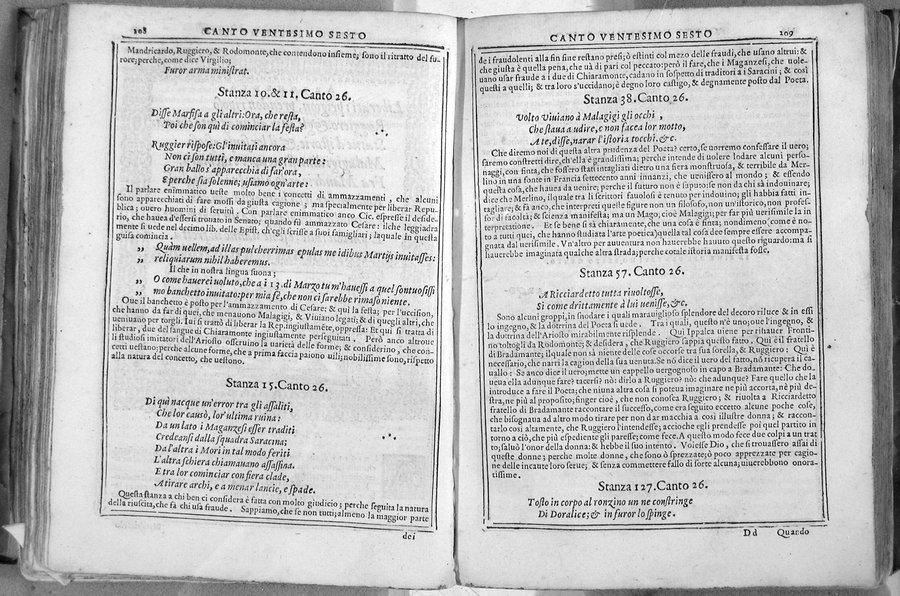 208
CANTO VENTESIMO SESTO
Mandricardo, Ruggiero, & Rodomonte, che contendono insieme; sono il ritratto del fu-
rore; perche, come dice Virgilio;
Furor arma ministrat.
Stanza 10. & 11, Canto 26.
Disse Marfisa a gli altri: Ora, che resta,
Poi che son quì di cominciar la festa?
Ruggier rispose: Gl'inuitati ancora
Non ci son tutti, e manca una gran parte:
Gran ballo s'apparecchia di far'ora,
E perche sia solenne; usiamo ogn'arte:
Il parlare enimmatico ueste molto bene i concetti di ammazzamenti, che alcuni
sono apparecchiati di fare mossi da giusta cagione; ma specialmente per liberar Repu-
blica; ouero huomini di seruitù. Con parlare enimmatico anco Cic. espresse il deside-
rio, che hauea d'essersi trouato in Senato; quando fù ammazzato Cesare: ilche leggiadra
mente si uede nel decimo lib. delle Epist. ch'egli scrisse a suoi famigliari; laquale in questa
guisa comincia.
„ Quàm uellem, ad illas pulcherrimas epulas me idibus Martijs inuitasses:
„ reliquiarum nihil haberemus.
Il che in nostra lingua suona;
„ O come hauerei uoluto, che a i 13. di Marzo tu m'hauessi a quel sontuosissi
„ mo banchetto inuitato: per mia fè, che non ci sarebbe rimaso niente.
Oue il banchetto è posto per l'ammazzamento di Cesare; & quì la festa; per l'uccision,
che hanno da far di quei, che menauono Malagigi, & Viuiano legati; & di quegli altri, che
ueniuano per torgli. Iui si trattò di liberar la Rep. ingiustamẽte, oppressa: Et quì si tratta di
liberar, due del sangue di Chiaramonte ingiustamente perseguitati. Però anco altroue
i studiosi imitatori dell'Ariosto osseruino la varietà delle forme; & considerino, che con-
cetti uestano; perche alcune forme, che a prima faccia paiono uili; nobilissime sono, rispetto
alla natura del concetto, che uestono.
Stanza 15. Canto 26.
Di quì nacque un'error tra gli assaliti,
Che lor causò, lor'ultima ruina:
Da un lato i Maganzesi esser traditi
Credeansi dalla squadra Saracina;
Da l'altra i Mori in tal modo feriti
L'altra schiera chiamauano assassina.
E tra lor cominciar con fiera clade,
A tirare archi, e a menar lancie, e spade.
Questa stanza a chi ben ci considera è fatta con molto giudicio; perche seguita la natura
della riuscita, che fà chi usa fraude. Sappiamo, che se non tutti; almeno la maggior parte
dei
CANTO VENTESIMO SESTO
209
de i fraudolenti alla fin fine restano presi; ò estinti col mezo delle fraudi, che usano altrui: &
che giusta è quella pena, che uà di pari col peccato: però il fare, che i Maganzesi, che uole-
uano usar fraude a i due di Chiaramonte, cadano in sospetto di traditori a i Saracini; & così
questi a quelli; & tra lor s'uccidano; è degno lor castigo, & degnamente posto dal Poeta.
Stanza 38. Canto 26.
Volto Viuiano à Malagigi gli occhi,
Che staua a udire, e non facea lor motto,
A te, disse, narar l'istoria tocchi. &c.
Che diremo noi di questa altra prudenza del Poeta? certo, se uorremo confessare il uero;
saremo constretti dire, ch'ella è grandissima; perche intende di uolere lodare alcuni perso-
naggi, con finta, che fossero stati intagliati dietro una fiera monstruosa, & terribile da Mer-
lino in una fonte in Francia settecento anni innanzi, che uenissero al mondo; & essendo
questa cosa, che hauea da uenire; perche il futuro non è ispauso se non da chi sà indouinare;
dice che Merlino, ilquale tra li scrittori fauolosi è tenuto per indouino; gli habbia fatti in-
tagliare; & fà anco, che interpreti quelle figure non un filosofo, non un'istorico, non profes-
sor di facoltà; & scienza manifesta; ma un Mago, cioè Malagigi; per far più uerisimile la in
terpretatione. Et se bene si sà chiaramente, che una cosa è finta, nondimeno, come è no-
to a tutti quei, che hanno studiata l'arte poetica; quella tal cosa dee sempre essere accompa-
gnata dal uerisimile. Vn'altro per auuentura non hauerebbe hauuto questo riguardo: ma si
hauerebbe imaginata qualche altra strada; perche cotale istoria manifesta fosse.
Stanza 57. Canto 26.
A Ricciardetto tutta riuoltosse,
Si come drittamente à lui uenisse, &c.
Sono alcuni groppi, in snodare i quali marauiglioso splendore del decoro riluce & in essi
lo ingegno, & la dottrina del Poeta si uede. Tra i quali, questo n'è uno; oue l'ingegno, &
la dottrina dell'Ariosto mirabilmente risplende. Quì Ippalca uiene per rihauer Fronti-
no toltogli da Rodomonte; & desidera, che Ruggiero sappia questo fatto. Quì è il fratello
di Bradamante; il quale non sà niente delle cose occorse tra sua sorella, & Ruggiero; Quì è
necessario, che narri la cagion della sua uenuta. Se nò dice il uero del fatto, nò ricupera il ca
uallo: Se anco dice il uero; mette un cappello uergognoso in capo a Bradamante: Che do-
ueua ella adunque fare? tacersi? nò: dirlo a Ruggiero? nò: che adunque? Fare quello che la
introduce a fare il Poeta; che niuna altra cosa si poteua imaginare ne più accorta, nè più de-
stra, ne più al proposito; finger cioè, che non conosca Ruggiero; & riuolta a Ricciardetto
fratello di Bradamante raccontare il successo, come era seguito eccetto alcune poche cose,
che bisognaua ad altro modo tirare per non dar macchia a così illustre donna; & raccon-
tarlo così altamente, che Ruggiero l'intendesse; accioche egli prendesse poi quel partito in
torno a ciò, che più espediente gli paresse; come fece. A questo modo fece due colpi a un trat
to; saluò l'onor della donna; & hebbe il suo intento. Volesse Dio, che si trouassero assai di
queste donne; perche molte donne, che sono ò sprezzate; ò poco apprezzate per cagio-
ne delle incaute lor serue; & senza commettere fallo di sorte alcuna; uiuerebbono onora-
tissime.
Stanza 127. Canto 26.
Tosto in corpo al ronzino un ne constringe
Di Doralice; & in furor lo spinge.
Dd Quardo